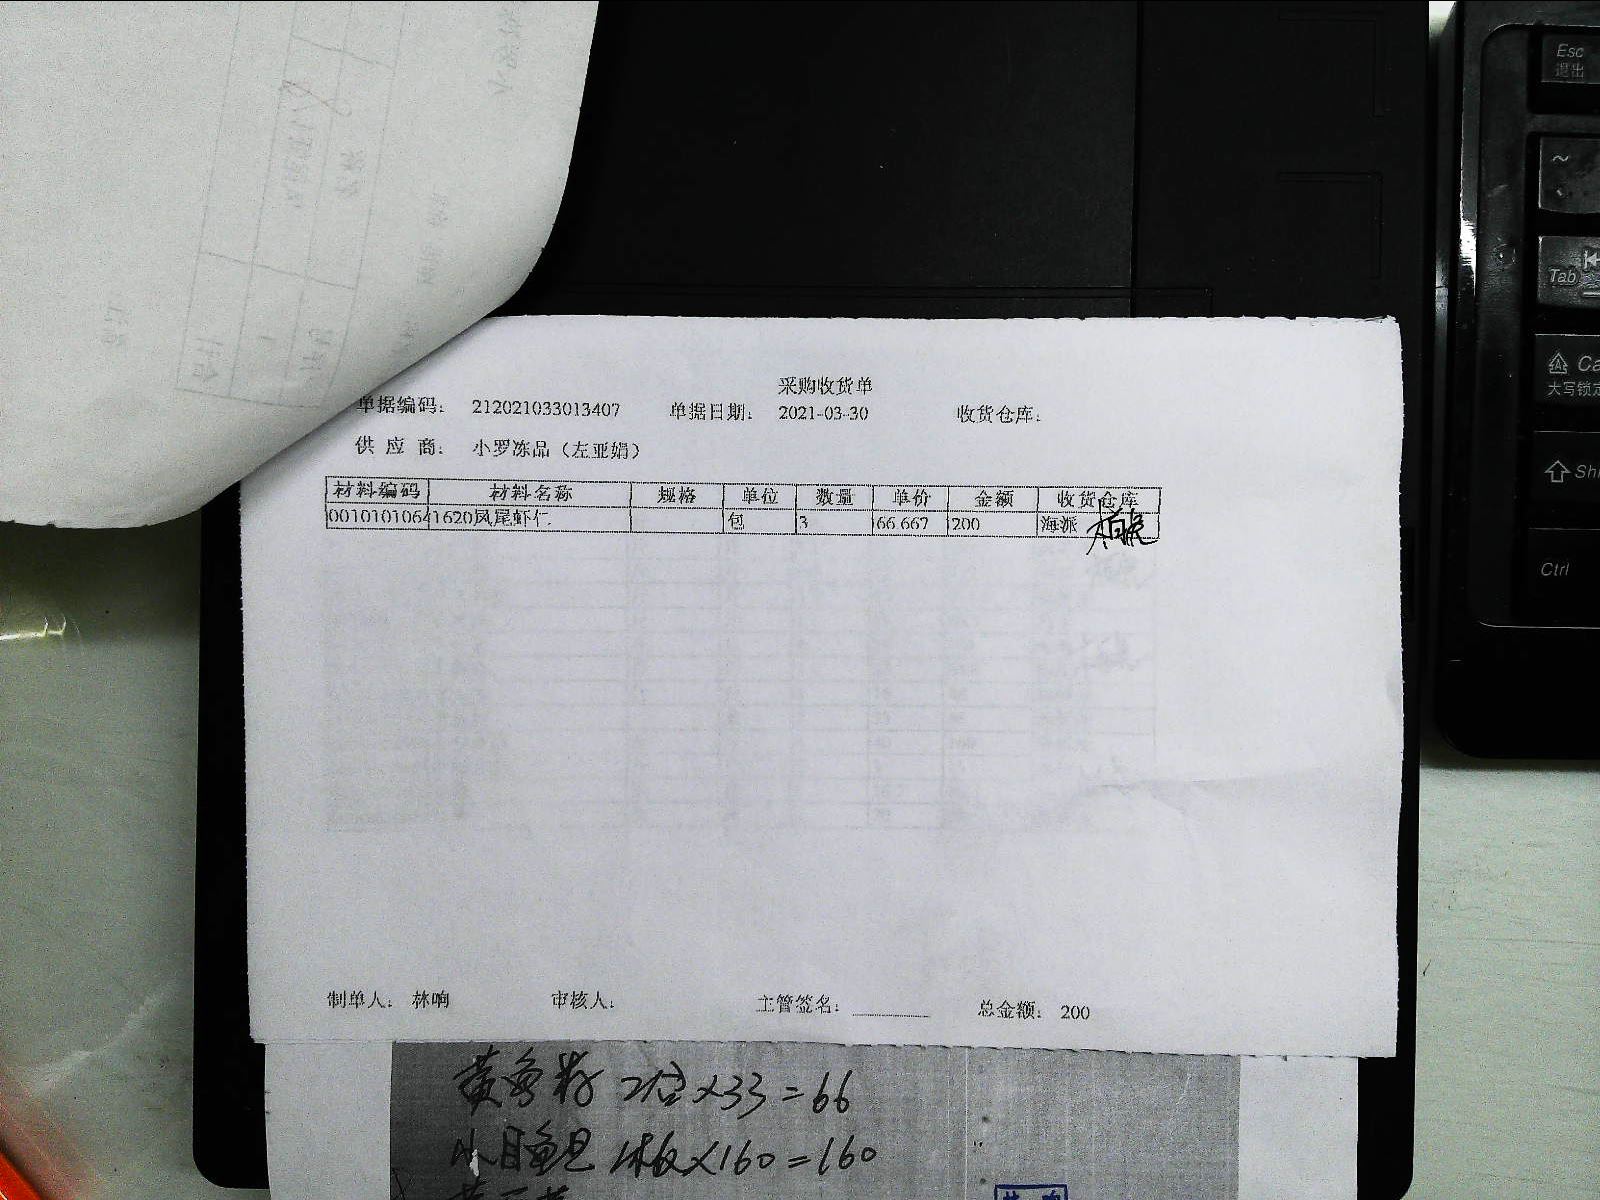 采购收货单
单据编码: 212021033013407 单据日期: 2021-03-30 收货仓库:
供应商: 小罗冻品（左亚娟）
材料编码 材料名称 规格 单位 数量 单价 金额 收货仓库
0010101064 1620凤尾虾仁 包 3 66.667 200 海派
制单人: 林响 审核人: 主管签名: 总金额: 200
黄鱼籽 2包×33=66
小目鱼尾 1板×160=160
Esc
退出
~
Tab
Ca
大写锁定
Shi
Ctrl